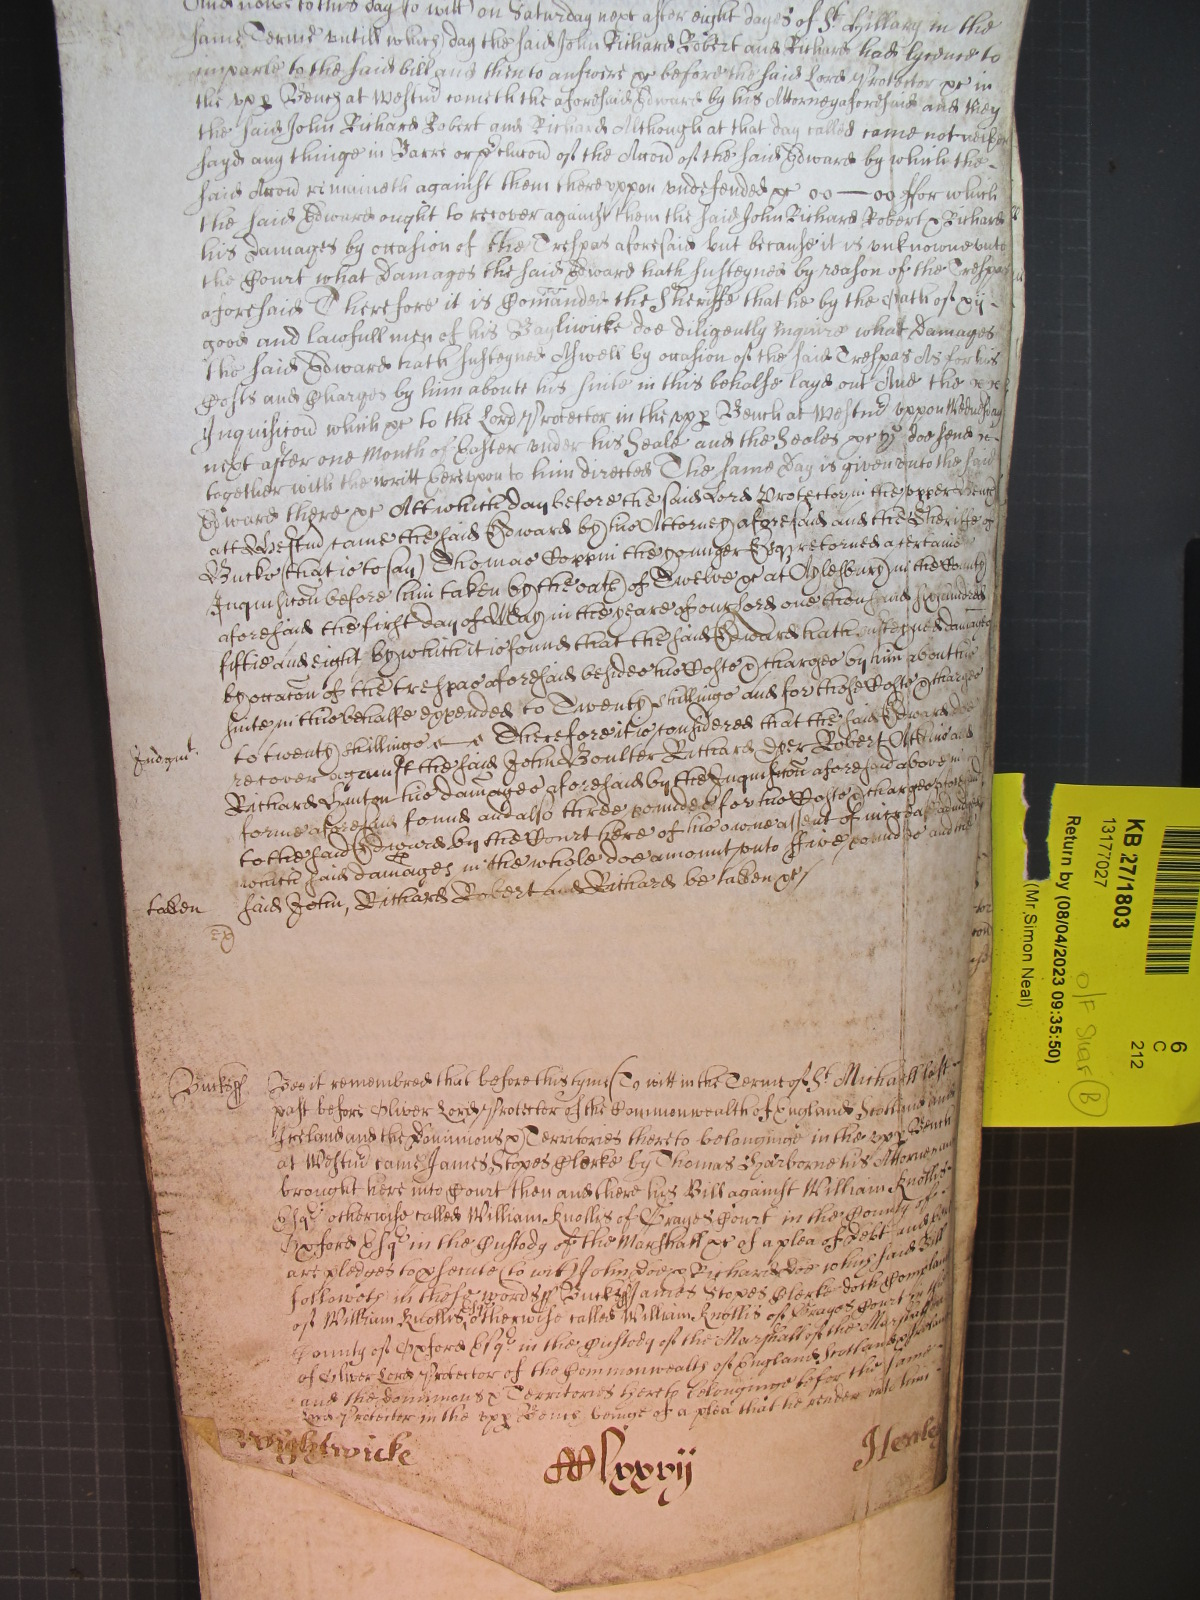 And nowe to this day (to witt) on Saturday next after eight dayes of St Hillary in the
same Terme untill which day the said John Richard Robert and Richard had lycence to
imparle to the said bill and then to answere &c before the said Lord Protector &c in
the upp Bench at Westmr cometh the aforesaid Edward by his Attorney aforesaid and they
the said John Richard Robert and Richard Although at that day called came not neither
sayd any thinge in Barre or pclucon of the Accon of the said Edward by which the
said Accon remaineth against them thereuppon undefended &c oo — oo ffor which
the said Edward ought to recover against them the said John Richard Robert & Richard
his damages by occasion of the Trespas aforesaid but because it is unknowne unto
the Court what damages the said Edward hath susteyned by reason of the Trespas
aforesaid Therefore it is Comanded the Sheriffe that he by the Oath of xij
good and lawfull men of his Bayliwicke doe diligently inquire what damages
the said Edward hath susteyned Aswell by occasion of the said Trespas As for his
Costs and Charges by him aboute his suite in this behalfe layd out And the
Inquisicon which &c to the Lord Protector in the upp Bench at Westmr uppon Wednesday
next after one Month of Easter under his Seale and the Seales &c doe send
together with the writt hereupon to him directed The same day is given unto the said
Edward there &c Att which day before the said Lord Protector in the upper Bench
att Westmr came the said Edward by his Attorney aforesaid and the Sheriffe of
Bucks (that is to say) Thomas Coppin the younger Esqr returned a certaine
Inquisicon before him taken by the oath of Twelve &c at Aylesbury in the County
aforesaid the first day of May in the yeare of our Lord one thousand sixhundred
fiftie and eight by which it is found that the said Edward hath susteyned damages
by occacon of the trespas aforesaid besides his Costs & charges by him about his
suite in this behalfe expended to Twenty shillings and for those Costs & charges
to twenty shillings Therefore it is considered that the said Edward doe
Judgmt.
recover against the said John Boulter Richard Dyer Robert Attkins and
Richard Lynton his damages aforesaid by the Inquisicon aforesaid above in
forme aforesaid found and also three pounds for his Costs & charges
to the said Edward by the Court here of his owne assent of increase
which said damages in the whole doe amount unto ffive pounds and the
taken said John, Richard Robert and Richard be taken &c/
Bucks ss Bee it remembred that before this tyme (To witt in the Terme of St Michaell last
past before Oliver Lord Protector of the Commonwealth of England Scotland and
Ireland and the Dominions & Territories thereto belonginge in the upp Bench
at Westmr came James Stopes Clerke by Thomas Harborne his Attorney and
brought here into Court then and there his Bill against William Knollis
Esqr otherwise called William Knollis of Grayes Court in the County of
Oxford Esqr in the Custody of the Marshall &c of a plea of Debt and
are pledges to psecute (to witt) John Doe & Richard Roe which said Bill
followeth in these words ss Bucks ss James Stopes Clerke doth Complaine
of William Knollis Esqr otherwise called William Knollis of Grayes Court in the
County of Oxford Esqr in the Custody of the Marshall of the Marshalsea
of Oliver Lord Protector of the Commonwealth of England Scotland & Ireland
and the Dominions & Territories thereto belonginge before the same
Lord Protector in the upp Bench beinge of a plea that he render unto him
Wightwicke
MMlxxxvij
Henley
KB 27/1803
13177027
Return by (08/04/2023 09:35:50)
(Mr Simon Neal)
6
C
212
O/F Shelf B